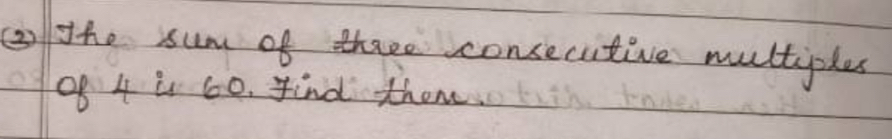 (2) The sum of three consecutive multiples
of 4 is 60. Find them.